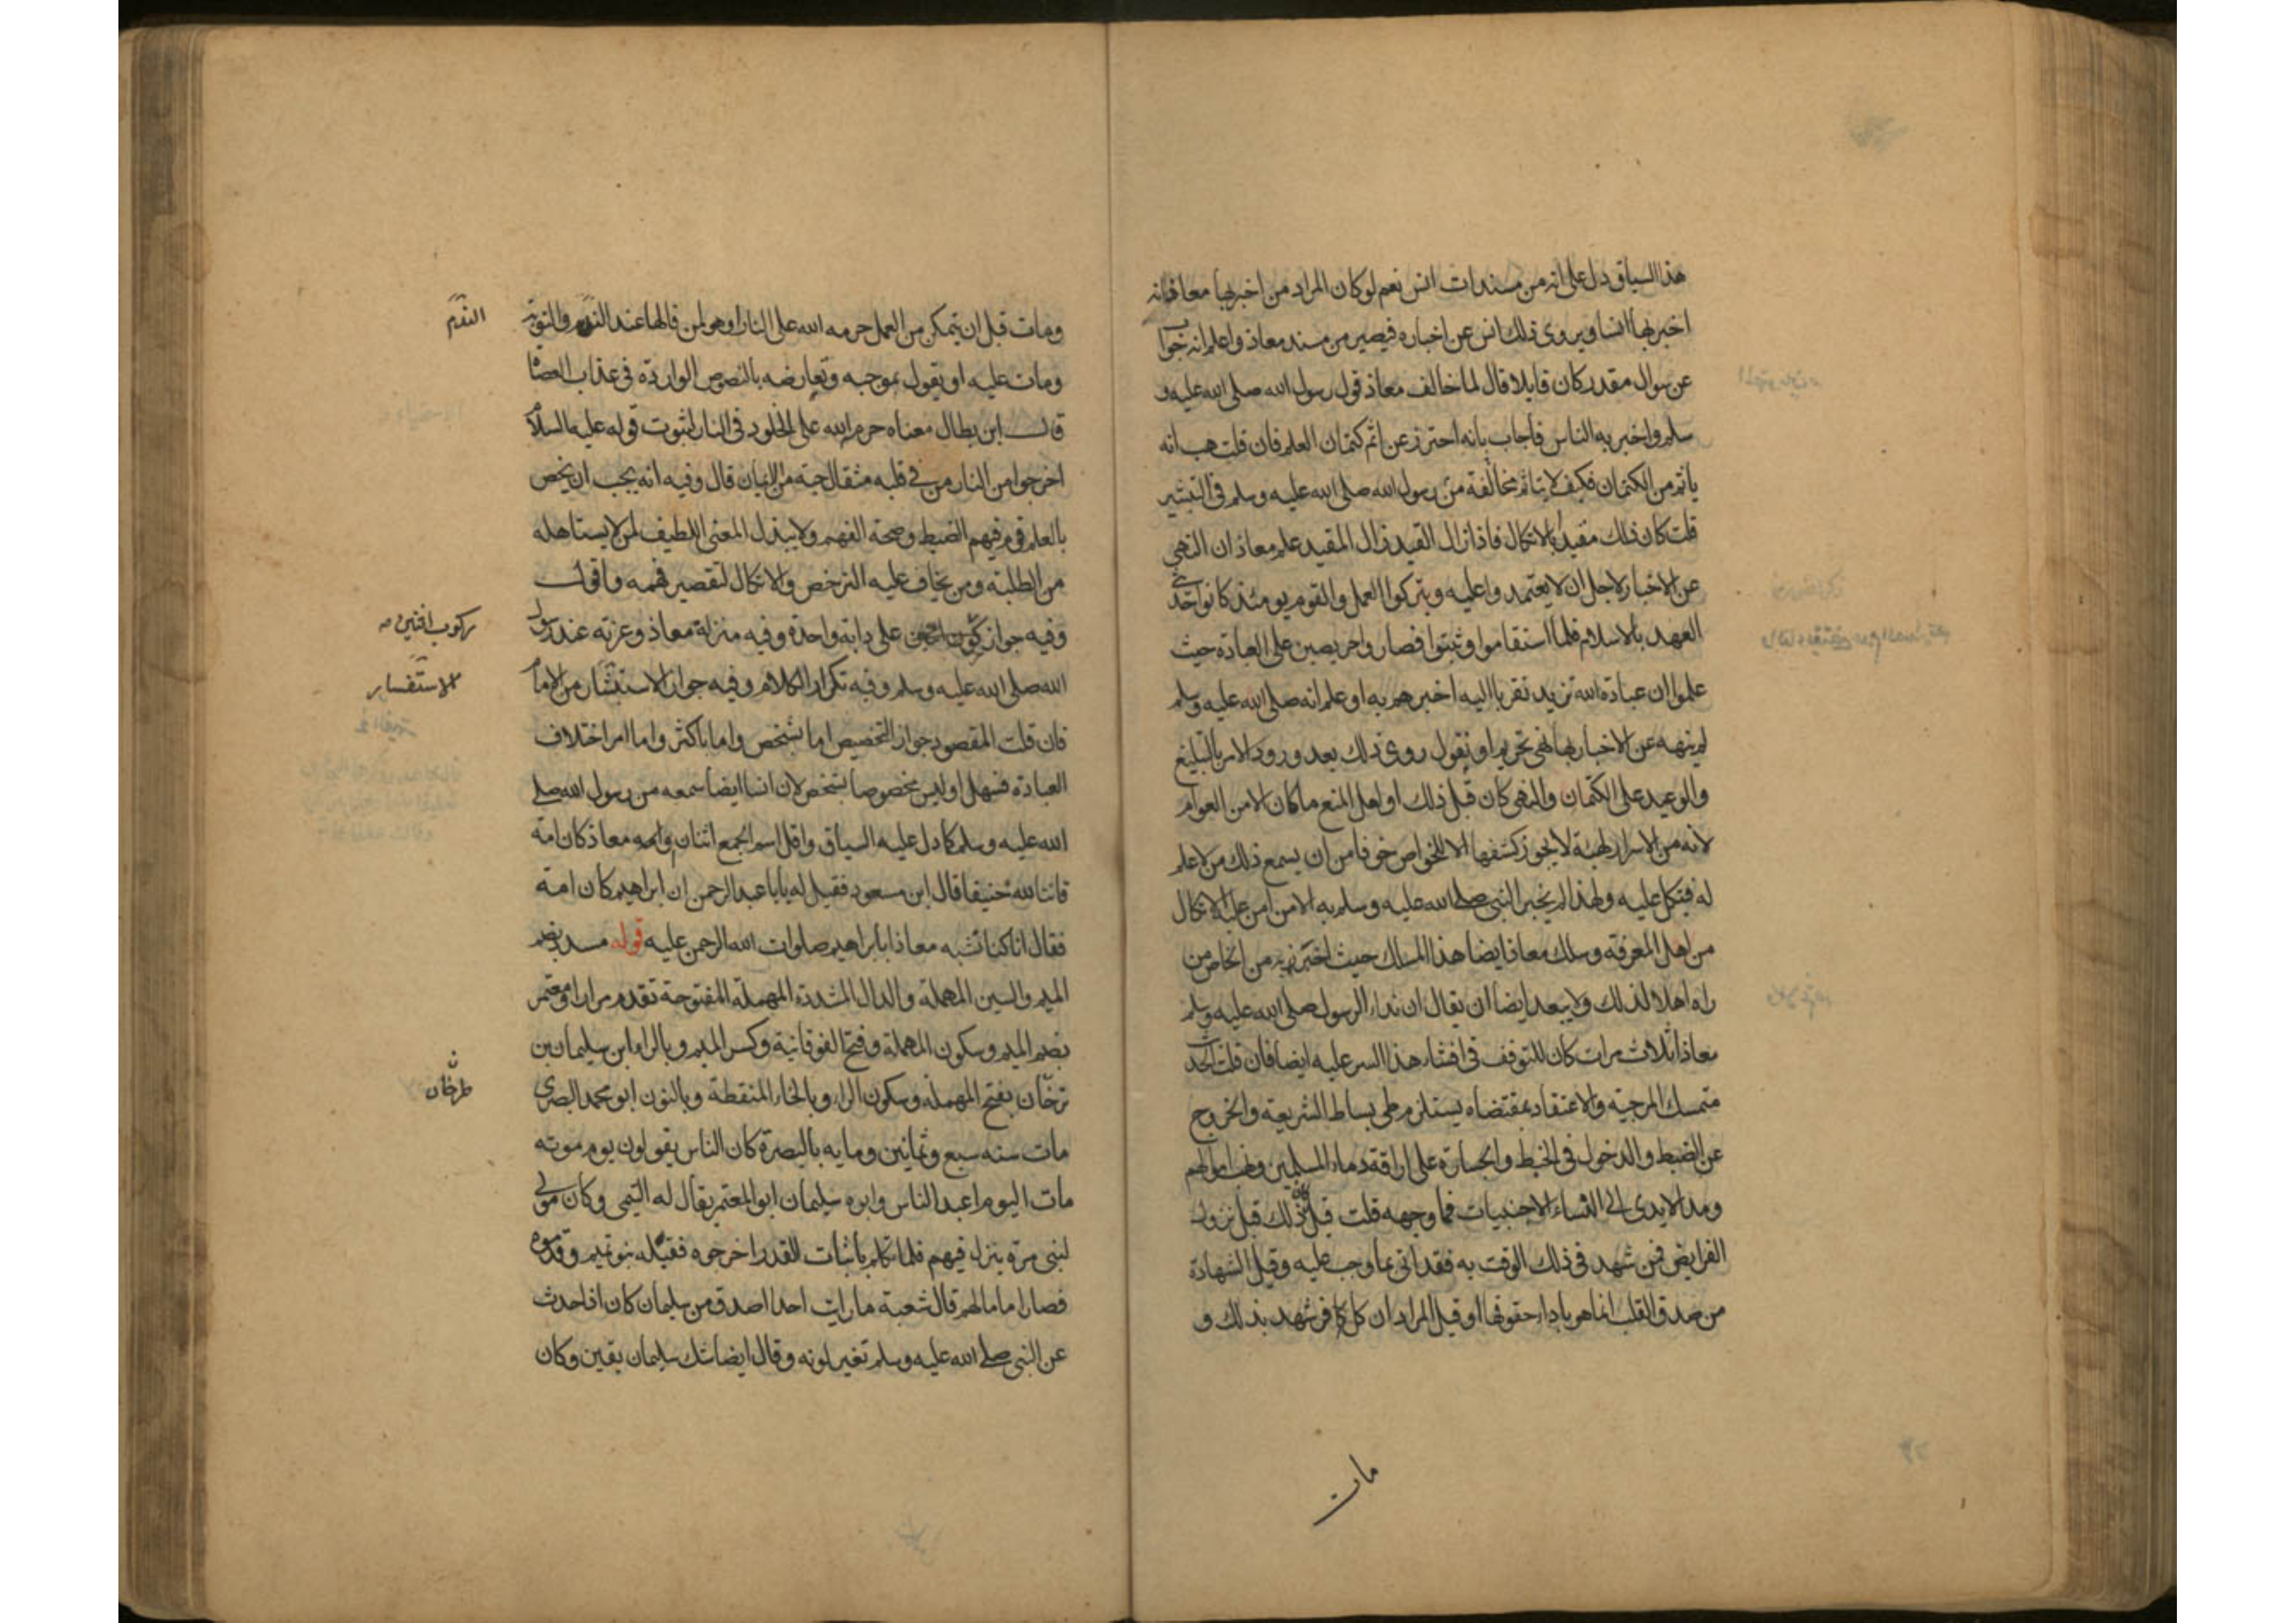 هذا السياق دل على انه من مسندات انس نعم لو كان المراد من اخبر بها معاذ انه
اخبر بها انسا ويروى ذلك انس عن اخباره فيصير من مسند معاذ واعلم انه جواب
عن سوال مقدر كان قايلا قال لما خالف معاذ قول رسول الله صلى الله عليه و
سلم واخبر به الناس فأجاب بانه احترز عن اثم كتمان العلم فان قلت هب انه
يأثم من الكتمان فكيف لا يتأثم مخالفة من رسول الله صلى الله عليه وسلم في التبشير
قلت كان ذلك مقيدا بالاتكال فاذا زال القيد زال المقيد علم معاذ ان النهي
عن الاخبار لاجل ان لا يعتمدوا عليه ويتركوا العمل والقوم يومئذ كانوا حديثي
العهد بالاسلام فلما استقاموا وثبتوا فصاروا حريصين على العبادة حيث
علموا ان عبادة الله تزيد تقربا اليه اخبرهم به او علم انه صلى الله عليه وسلم
لم ينهه عن الاخبار بها نهي تحريم او نقول روى ذلك بعد ورود الامر بالتبليغ
والوعيد على الكتمان والنهى كان قبل ذلك او لعل المنع ما كان الا من العوام
لانه من الاسرار الهية لا يجوز كشفها الا للخواص خوفا من ان يسمع ذلك من لا علم
له فيتكل عليه ولهذا لم يخبر النبي صلى الله عليه وسلم به الا من امن عليه الاتكال
من اهل المعرفة وسلك معاذ ايضا هذا المسلك حيث اخبر به من الخاص من
راه اهلا لذلك ولا يبعد ايضا ان يقال ان نداء الرسول صلى الله عليه وسلم
معاذا ثلاث مرات كان للتوقف في افشاء هذا السر عليه ايضا فان قلت الحديث
متمسك المرجية والاعتقاد بمقتضاه يستلزم طي بساط الشريعة والخروج
عن الضبط والدخول في الخبط والجسارة على اراقة دماء المسلمين ونهب اموالهم
ومد الايدى الى النساء الاجنبيات فما وجهه قلت قيل كان ذلك قبل نزول
الفرايض فمن شهد في ذلك الوقت به فقد اتى بما وجب عليه وقيل الشهادة
من صدق القلب انما هو بادا حقوقها او قيل المراد ان كل كافر شهد بذلك و
مات
ومات قبل ان يتمكن من العمل حرمه الله على النار او هو لمن قالها عند الندم والتوبة
الندم
ومات عليه او يقول بموجبه وتعارضه بالنصوص الواردة في عذاب العصاة
قال ابن بطال معناه حرم الله على الخلود في النار لثبوت قوله عليه السلام
اخرجوا من النار من في قلبه مثقال حبة من الايمان قال وفيه انه يجب ان يخص
بالعلم قوم فيهم الضبط وصحة الفهم ولا يبذل المعنى اللطيف لمن لا يستاهله
من الطلبة ومن يخاف عليه الترخص والاتكال لتقصير فهمه واقول
وفيه جواز ركوب اثنين على دابة واحدة وفيه منزلة معاذ وعزته عند رسول
ركوب اثنين
الله صلى الله عليه وسلم وفيه تكرار الكلام وفيه جواز الاستفسار من الامام
الاستفسار
فان قلت المقصود جواز التخصيص اما بشخص واما باكثر واما امر اختلاف
العبادة فسهل او ليس مخصوصا بشخص لان انسا ايضا سمعه من رسول الله صلى
الله عليه وسلم كما دل عليه السياق واقل اسم الجمع اثنان معاذ كان امة
قانتا لله حنيفا قال ابن مسعود فقيل له يابا عبد الرحمن ان ابراهيم كان امة
فقال انا كنا نشبه معاذا بابراهيم صلوات الله الرحمن عليه قوله مسدد بضم
الميم والسين المهملة والدال المشددة المهملة المفتوحة تقدم مرارا ومعتمر
بضم الميم وسكون المهملة وفتح الفوقانية وكسر الميم وبالراء ابن سليمان بن
ترخان بفتح المهملة وسكون الراء وبالخاء المنقطة وبالنون ابو محمد البصري
طرخان
مات سنه سبع وثمانين ومايه بالبصرة كان الناس يقولون يوم موته
مات اليوم اعبد الناس وابوه سليمان ابو المعتمر يقال له التيمي وكان مولى
لبني مرة ينزل فيهم فلما تكلم باثبات القدر اخرجوه فقبله بنو تميم وقدموه
فصار اماما لهم قال شعبة ما رايت احدا اصدق من سليمان كان اذا حدث
عن النبي صلى الله عليه وسلم تغير لونه وقال ايضا شك سليمان يقين وكان